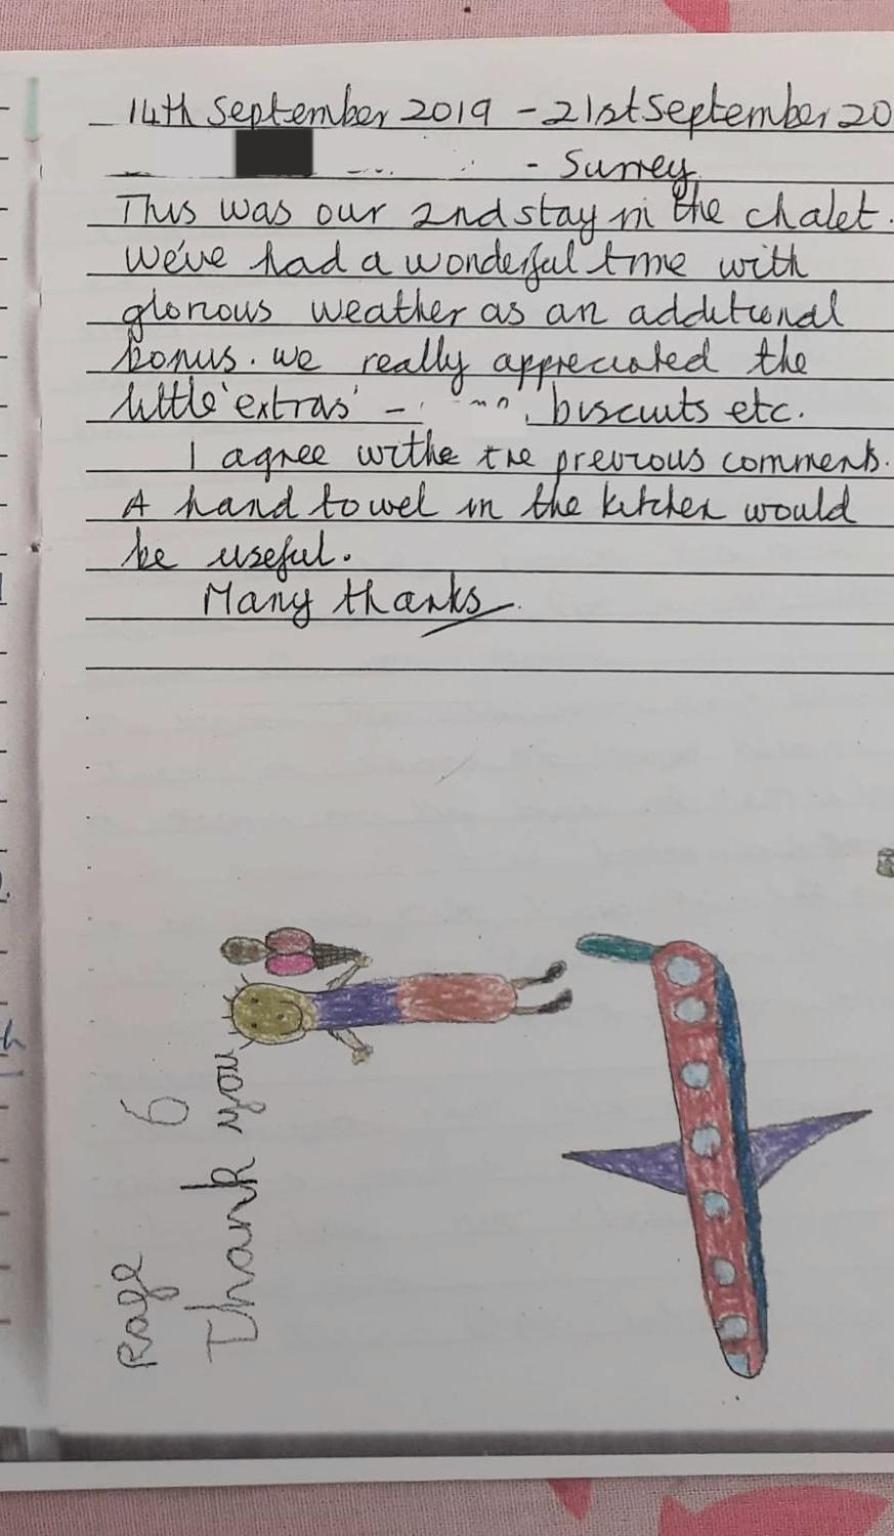 14th September 2019 - 21st September 20
- Surrey
This was our 2nd stay in the chalet.
We've had a wonderful time with
glorious weather as an additional
bonus. We really appreciated the
little 'extras' - biscuits etc.
I agree withe the previous comments.
A hand towel in the kitchen would
be useful.
Many thanks
Rafe 6
Thank you